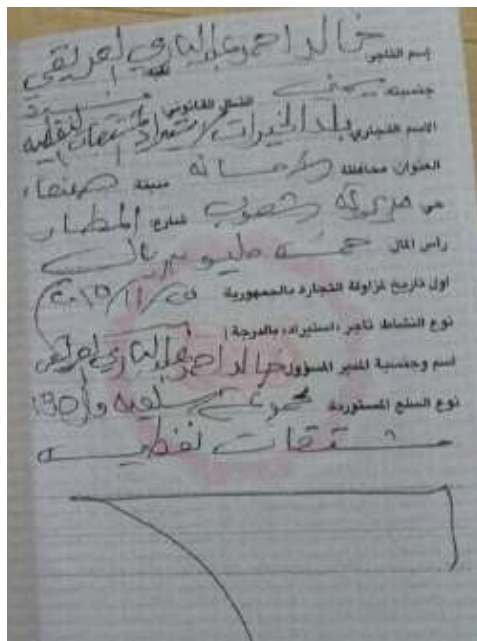 إسم التاجر خالد احمد عبدالباري العريقي
جنسيته يمني الشكل القانوني
الاسم التجاري بلد الخيرات لاستيراد المشتقات النفطية
العنوان محافظة الامانه مدينة صنعاء
حي مديرية شعوب شارع المطار
رأس المال خمسه مليون ريال
اول تاريخ لمزاولة التجارة بالجمهورية ٢٠١٥/١١/٢٥
نوع النشاط تاجر (استيراد) بالدرجة (
اسم وجنسية المدير المسؤول خالد احمد عبدالباري العريقي
نوع السلع المستوردة مجموعة سلعيه واحده
مشتقات نفطيه